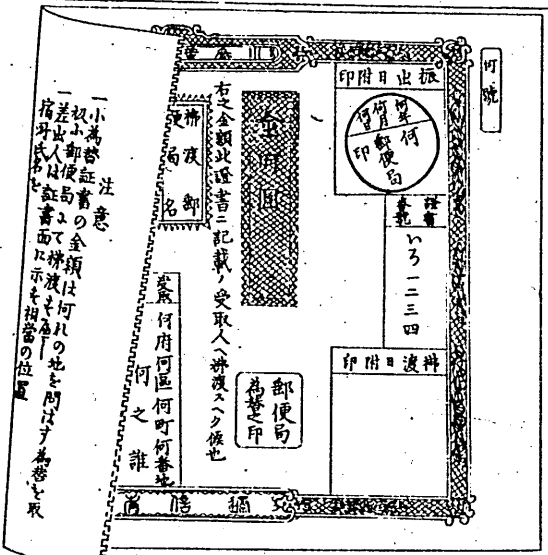 何號
振出日附印
何年何月何日
何郵便局印
證書番號
いろ一二三四
拂渡日附印
金何圓
右之金額此證書ニ記載ノ受取人ヘ拂渡スヘク候也
郵便局為替之印
拂渡郵便局名
受取
何府何區何町何番地
何之誰
注意
一小為替証書の金額は何れの地を問はす為替を取
扱ふ郵便局にて拂渡を為し
一差出人は証書面に示す相當の位置
宿所氏名を